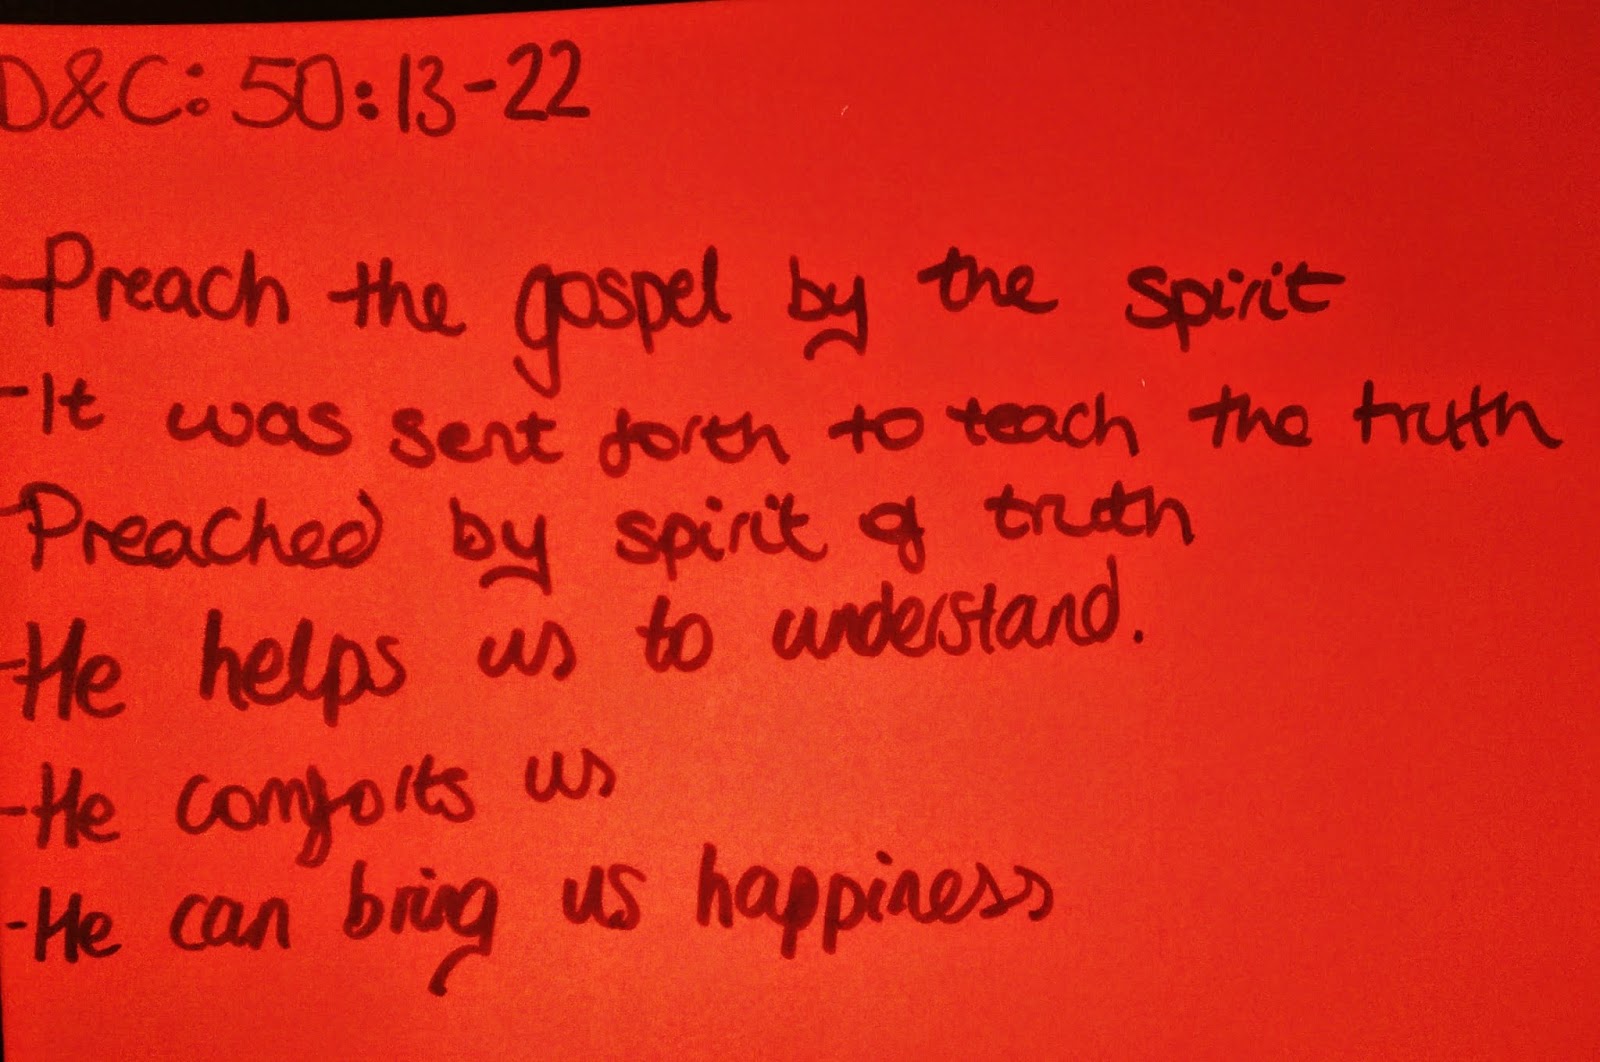 D&C: 50:13-22
-Preach the gospel by the spirit
-It was sent forth to teach the truth
-Preached by spirit of truth
-He helps us to understand.
-He comforts us
-He can bring us happiness